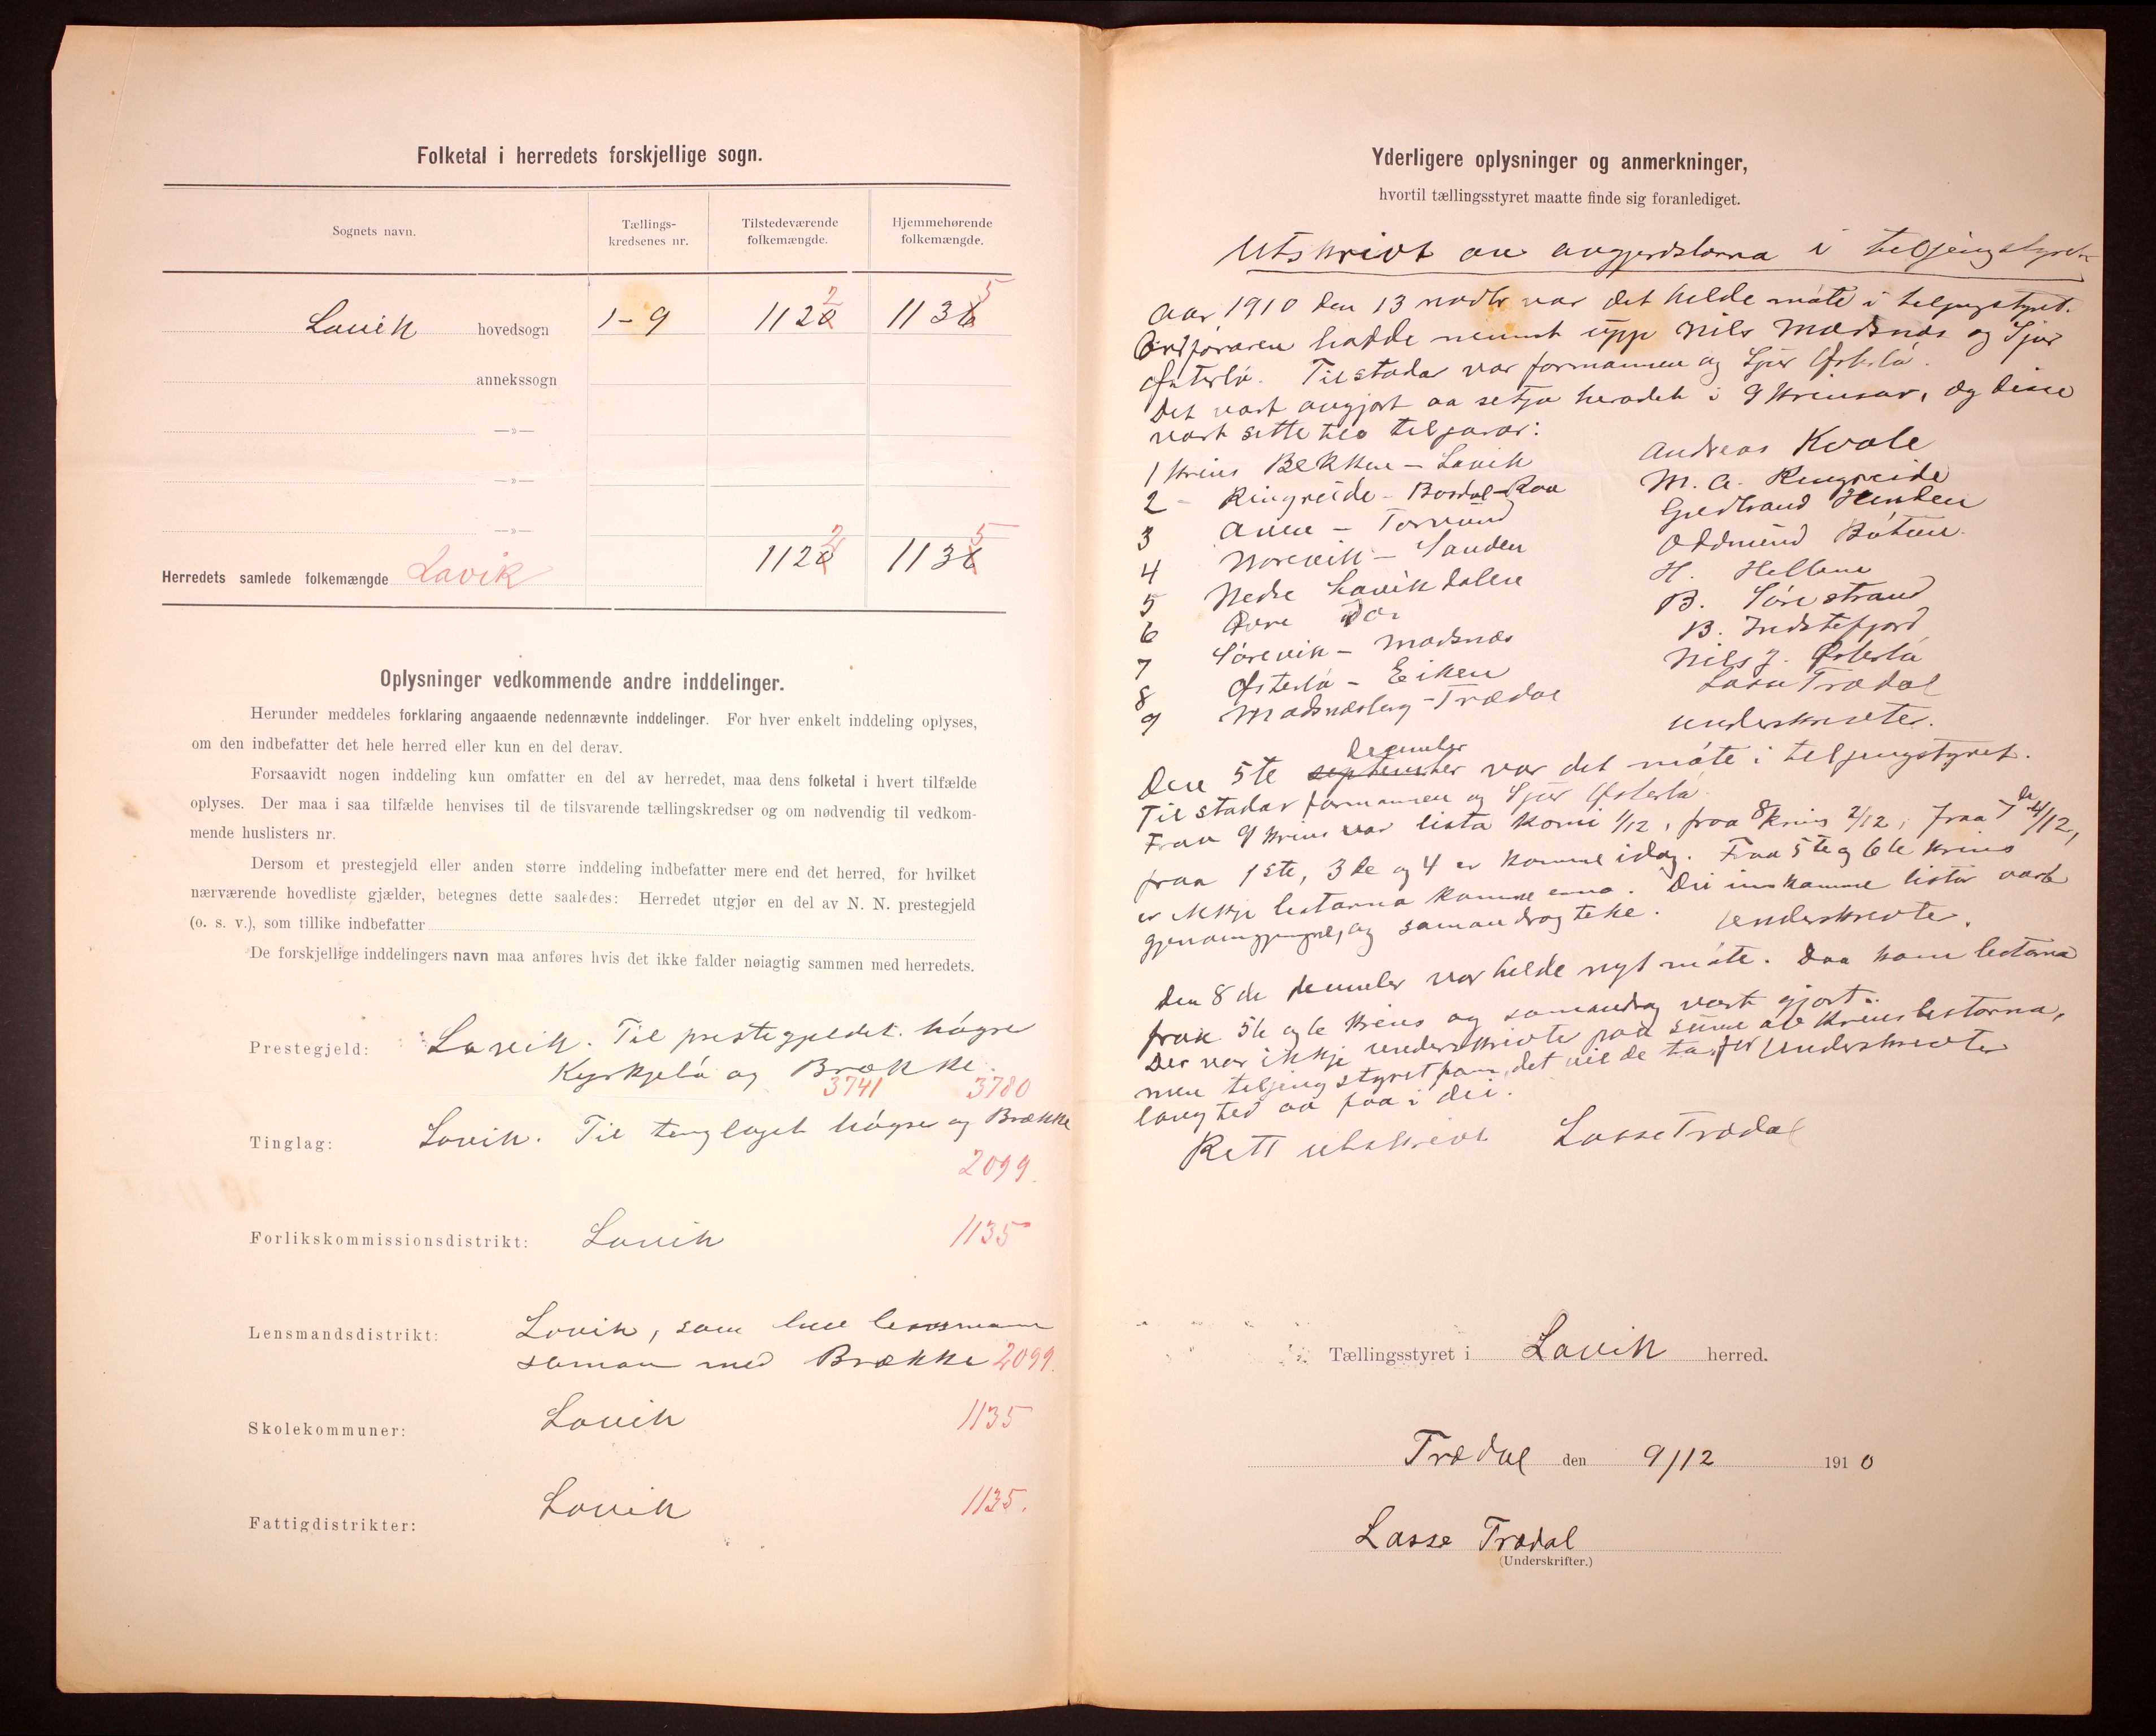 Folketal i herredets forskjellige sogn.
Sognets navn. Tællings-kredsenes nr. Tilstedeværende folkemængde. Hjemmehørende folkemængde.
Lavik hovedsogn 1-9 1120 2 1136 5
annekssogn
—»—
—»—
—»—
Herredets samlede folkemængde Lavik 1120 2 1136 5
Oplysninger vedkommende andre inddelinger.
Herunder meddeles forklaring angaaende nedennævnte inddelinger. For hver enkelt inddeling oplyses,
om den indbefatter det hele herred eller kun en del derav.
Forsaavidt nogen inddeling kun omfatter en del av herredet, maa dens folketal i hvert tilfælde
oplyses. Der maa i saa tilfælde henvises til de tilsvarende tællingskredser og om nødvendig til vedkom-
mende huslisters nr.
Dersom et prestegjeld eller anden større inddeling indbefatter mere end det herred, for hvilket
nærværende hovedliste gjælder, betegnes dette saaledes: Herredet utgjør en del av N. N. prestegjeld
(o. s. v.), som tillike indbefatter
De forskjellige inddelingers navn maa anføres hvis det ikke falder nøiagtig sammen med herredets.
Prestegjeld: Lavik. Til prestegjeldet høgre
Kyrkjebø og Brække.
3741 3780
Tinglag: Lavik. Til tinglaget høgre og Brække
2099.
Forlikskommissionsdistrikt: Lavik 1135
Lensmandsdistrikt: Lavik, som hev lensmann
saman med Brække 2099.
Skolekommuner: Lavik 1135
Fattigdistrikter: Lavik 1135.
Yderligere oplysninger og anmerkninger,
hvortil tællingsstyret maatte finde sig foranlediget.
Utskrivt av avgjerdslorna i teljingstyret
Aar 1910 den 13 novbr var det helde møte i teljingstyret.
Ordføraren hadde nemnt upp Nils Madsnæs og Sjur
Østerbø. Tilstadar var formannen og Sjur Østerbø.
Det vart avgjort aa setja heradet i 9 krinsar, og disse
vart sette til teljarar:
1 krins Bekken - Lavik Andreas Kvale
2 - Ringreide - Bordal - Raa M. A. Ringreide
3 Aven - Torvund Gjedtrand
4 Norevik - Sanden Oddmund Bøtun.
5 Nedre Lavikdalen H. Hellene
6 Øvre Do. B. Sørestrand
7 Sørevik - Madsnæs B. Indstefjord
8 Østerbø - Eiken Nils J. Østerbø
9 Madsnæsberg - Trædal Lasse Trædal
Underskrivter.
December
Den 5te september var det møte i teljingstyret.
Tilstadar formannen og Sjur Østerbø.
Fraa 9 krins var lista komi 1/12, fraa 8 krins 2/12, fraa 7de 4/12,
fraa 1ste, 3de og 4 er komme idag. Fraa 5te og 6te krins
er ikkje listorna komne enno. Dei innkomne listor vart
gjenomgjengne, og samandrag teke. Underskrivter.
Den 8de december var helde nyt møte. Daa kom listorna
fraa 5te og 6te krins og samandrag vart gjort.
Der var ikkje underskrivte paa sume av krinslistorna,
men teljingstyret fann, det vil de ta for
lang tid aa faa i dei. Underskrivter
Rett utskrivt Lasse Trædal
Tællingsstyret i Lavik herred.
Trædal den 9/12 1910
Lasse Trædal
(Underskrifter.)